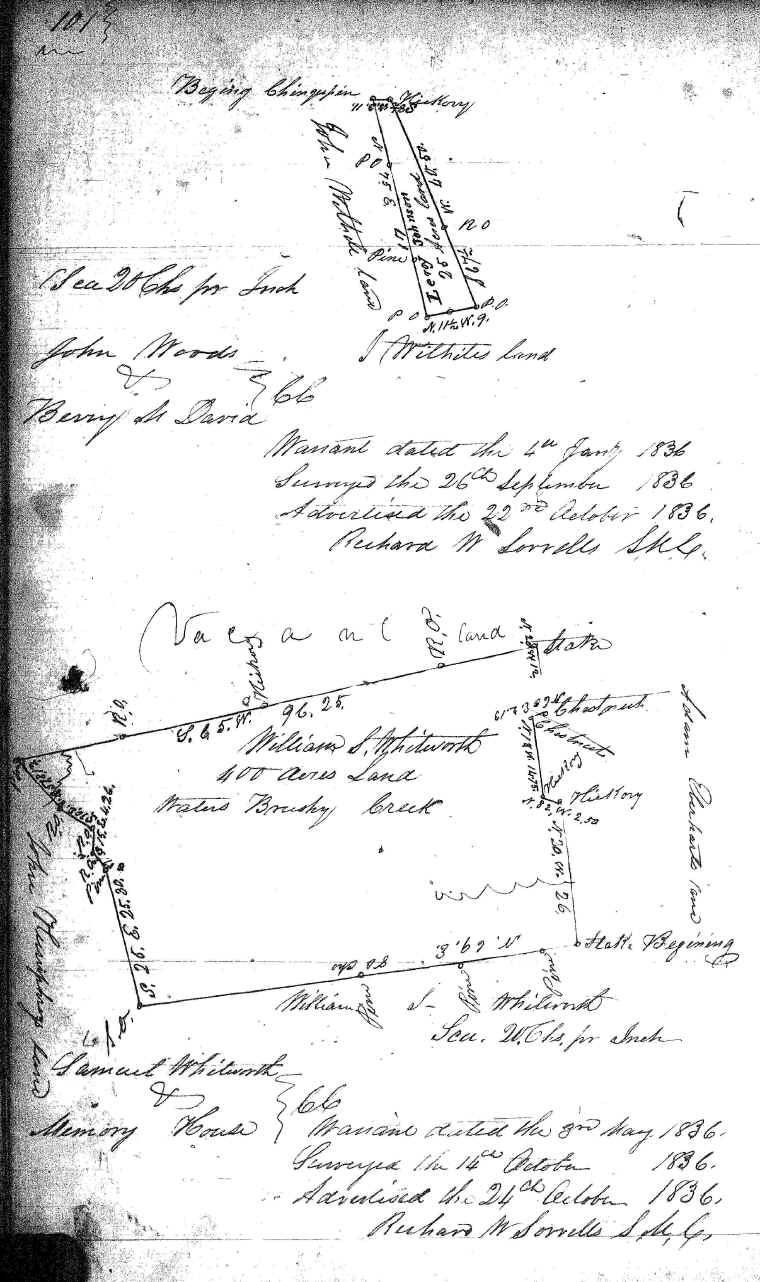 101
Begining Chinquepin
Hickory
John Wilhite land
P O
N. 15 E
Pine
R O
26 Acres Land
P O
P.O.
N. 11½ W. 9.
Sca 20 Chs pr Inch
J Wilhites land
John Woods
&
Berry M David
CC
Warrant dated the 4th Jany 1836
Surveyed the 26th September 1836
Advertised the 22nd October 1836.
Richard W Sorrells S.M.C.
Vacant land
R.O.
Stake
Hickory
R.O.
S. 65. W. 96. 25.
Chestnut
Chestnut
William S. Whitworth
400 Acres Land
Waters Brushy Creek
Hickory
Hickory
N. 20. W. 26.
Adam Eberharts land
John Humphrys land
S. 26. E. 25. 30.
N. 69. E.
Stake Begining
Pine
Pine
Pine
William S Whitworth
Sca. 20. Chs. pr Inch
Samuel Whitworth
&
Memory House
CC
Warrant dated the 3rd May 1836.
Surveyed the 14th October 1836.
Advertised the 24th October 1836.
Richard W Sorrells S.M.C.